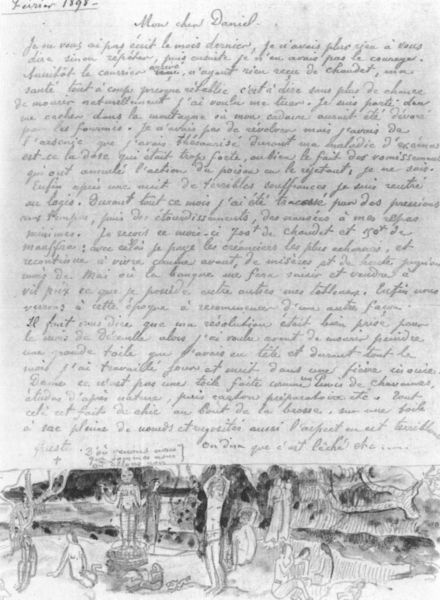 Février 1898 -
Mon cher Daniel.
Je ne vous ai pas écrit le mois dernier, je n'avais plus rien à vous
dire sinon répéter, puis ensuite je n'en avais pas le courage.
Aussitôt le courrier arrivé, n'ayant rien reçu de Chaudet, ma
santé tout à coup presque rétablie c'est à dire sans plus de chance
de mourir naturellement j'ai voulu me tuer. Je suis parti
me cacher dans la montagne où mon cadavre aurait été dévoré
par les fourmis. Je n'avais pas de révolver mais j'avais de
l'arsenic que j'avais thésaurisé durant ma maladie d'eczéma
est-ce la dose qui était trop forte, ou bien le fait des vomissements
qui ont annulé l'action du poison en le rejetant, je ne sais.
Enfin après une nuit de terribles souffrances je suis rentré
au logis. Durant tout ce mois j'ai été tracassé par des pressions
aux tempes, puis des étourdissements, des nausées à mes repas
minimes. Je reçois ce mois-ci 700f de Chaudet et 150f de
Mauffra: avec cela je paye les créanciers les plus acharnés, et
recontinue à vivre comme avant de misères et de honte jusqu'au
mois de Mai où la banque me fera saisir et vendre à
vil prix ce que je possède entre autres mes tableaux. Enfin nous
verrons à cette époque à recommencer d'une autre façon.
Il faut vous dire que ma résolution était bien prise pour
le mois de décembre alors j'ai voulu avant de mourir peindre
une grande toile que j'avais en tête et durant tout le
mois j'ai travaillé jour et nuit dans une fièvre inouïe.
Dame ce n'est pas une toile faite comme un Puvis de Chavannes,
études d'après nature, puis carton préparatoire etc. Tout
cela est fait de chic au bout de la brosse, sur une toile
à sac pleine de nœuds et rugosités aussi l'aspect en est terriblement
fruste.
On dira que c'est lâché etc....
D'où venons nous
que sommes nous
où allons nous